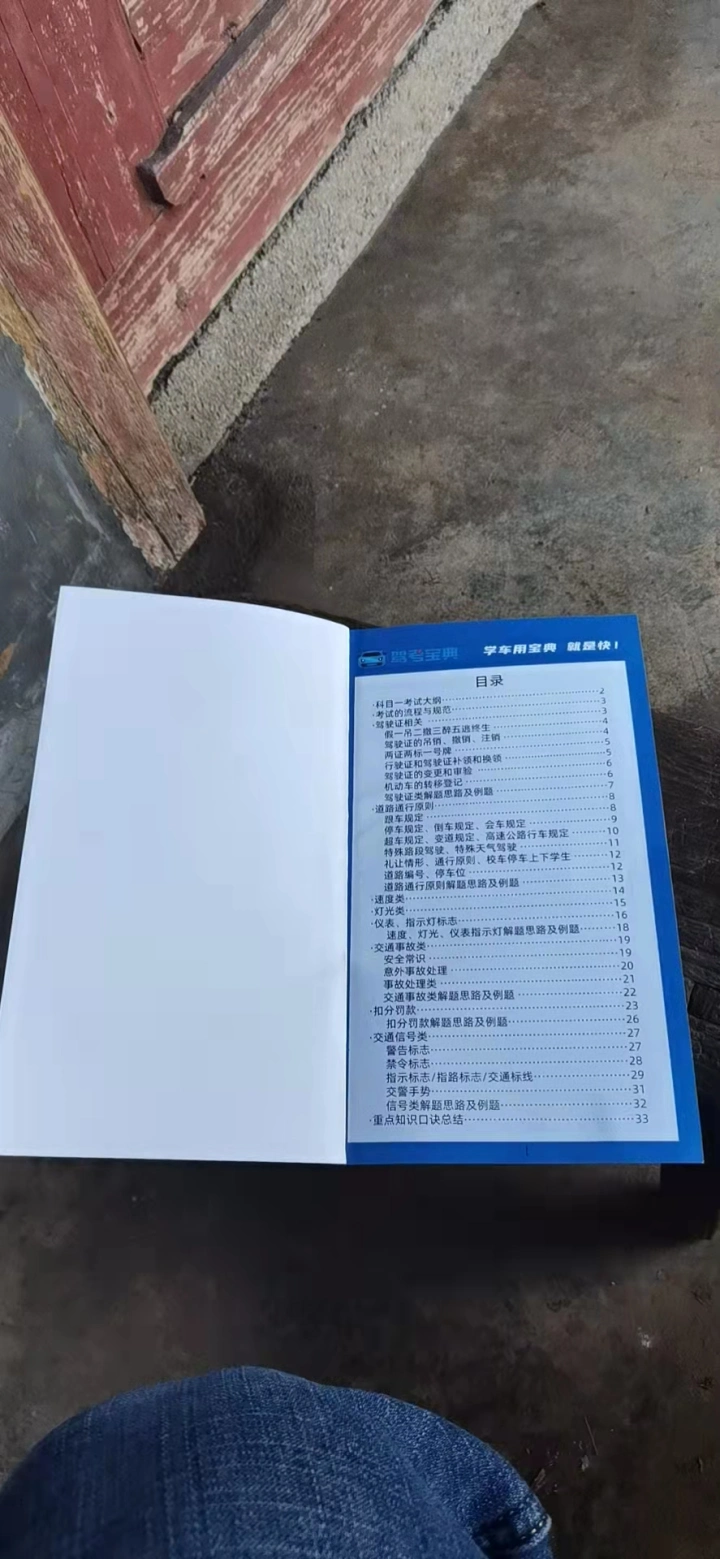 驾考宝典 学车用宝典 就是快!
目录
·科目一考试大纲 2
·考试的流程与规范 3
·驾驶证相关 3
假一吊二撤三醉五逃终生 4
驾驶证的吊销、撤销、注销 4
两证两标一号牌 5
行驶证和驾驶证补领和换领 5
驾驶证的变更和审验 6
机动车的转移登记 6
驾驶证类解题思路及例题 7
·道路通行原则 8
跟车规定 8
停车规定、倒车规定、会车规定 9
超车规定、变道规定、高速公路行车规定 10
特殊路段驾驶、特殊天气驾驶 11
礼让情形、通行原则、校车停车上下学生 12
道路编号、停车位 12
道路通行原则解题思路及例题 13
·速度类 14
·灯光类 15
·仪表、指示灯标志 16
速度、灯光、仪表指示灯解题思路及例题 18
·交通事故类 19
安全常识 19
意外事故处理 20
事故处理类 21
交通事故类解题思路及例题 22
·扣分罚款 23
扣分罚款解题思路及例题 26
·交通信号类 27
警告标志 27
禁令标志 28
指示标志/指路标志/交通标线 29
交警手势 31
信号类解题思路及例题 32
·重点知识口诀总结 33